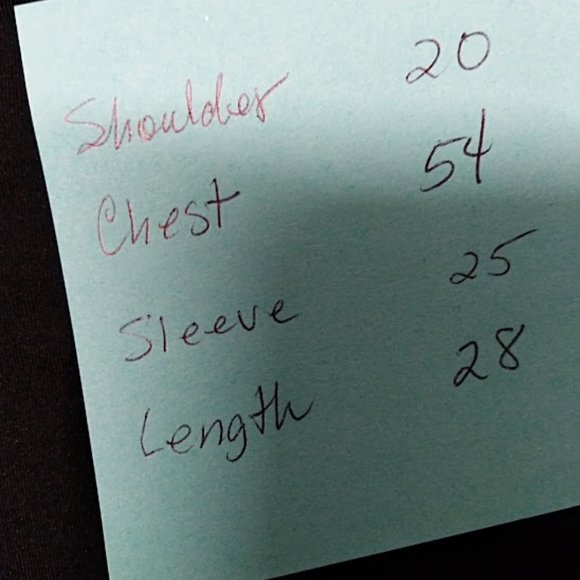 Shoulder 20
Chest 54
Sleeve 25
Length 28